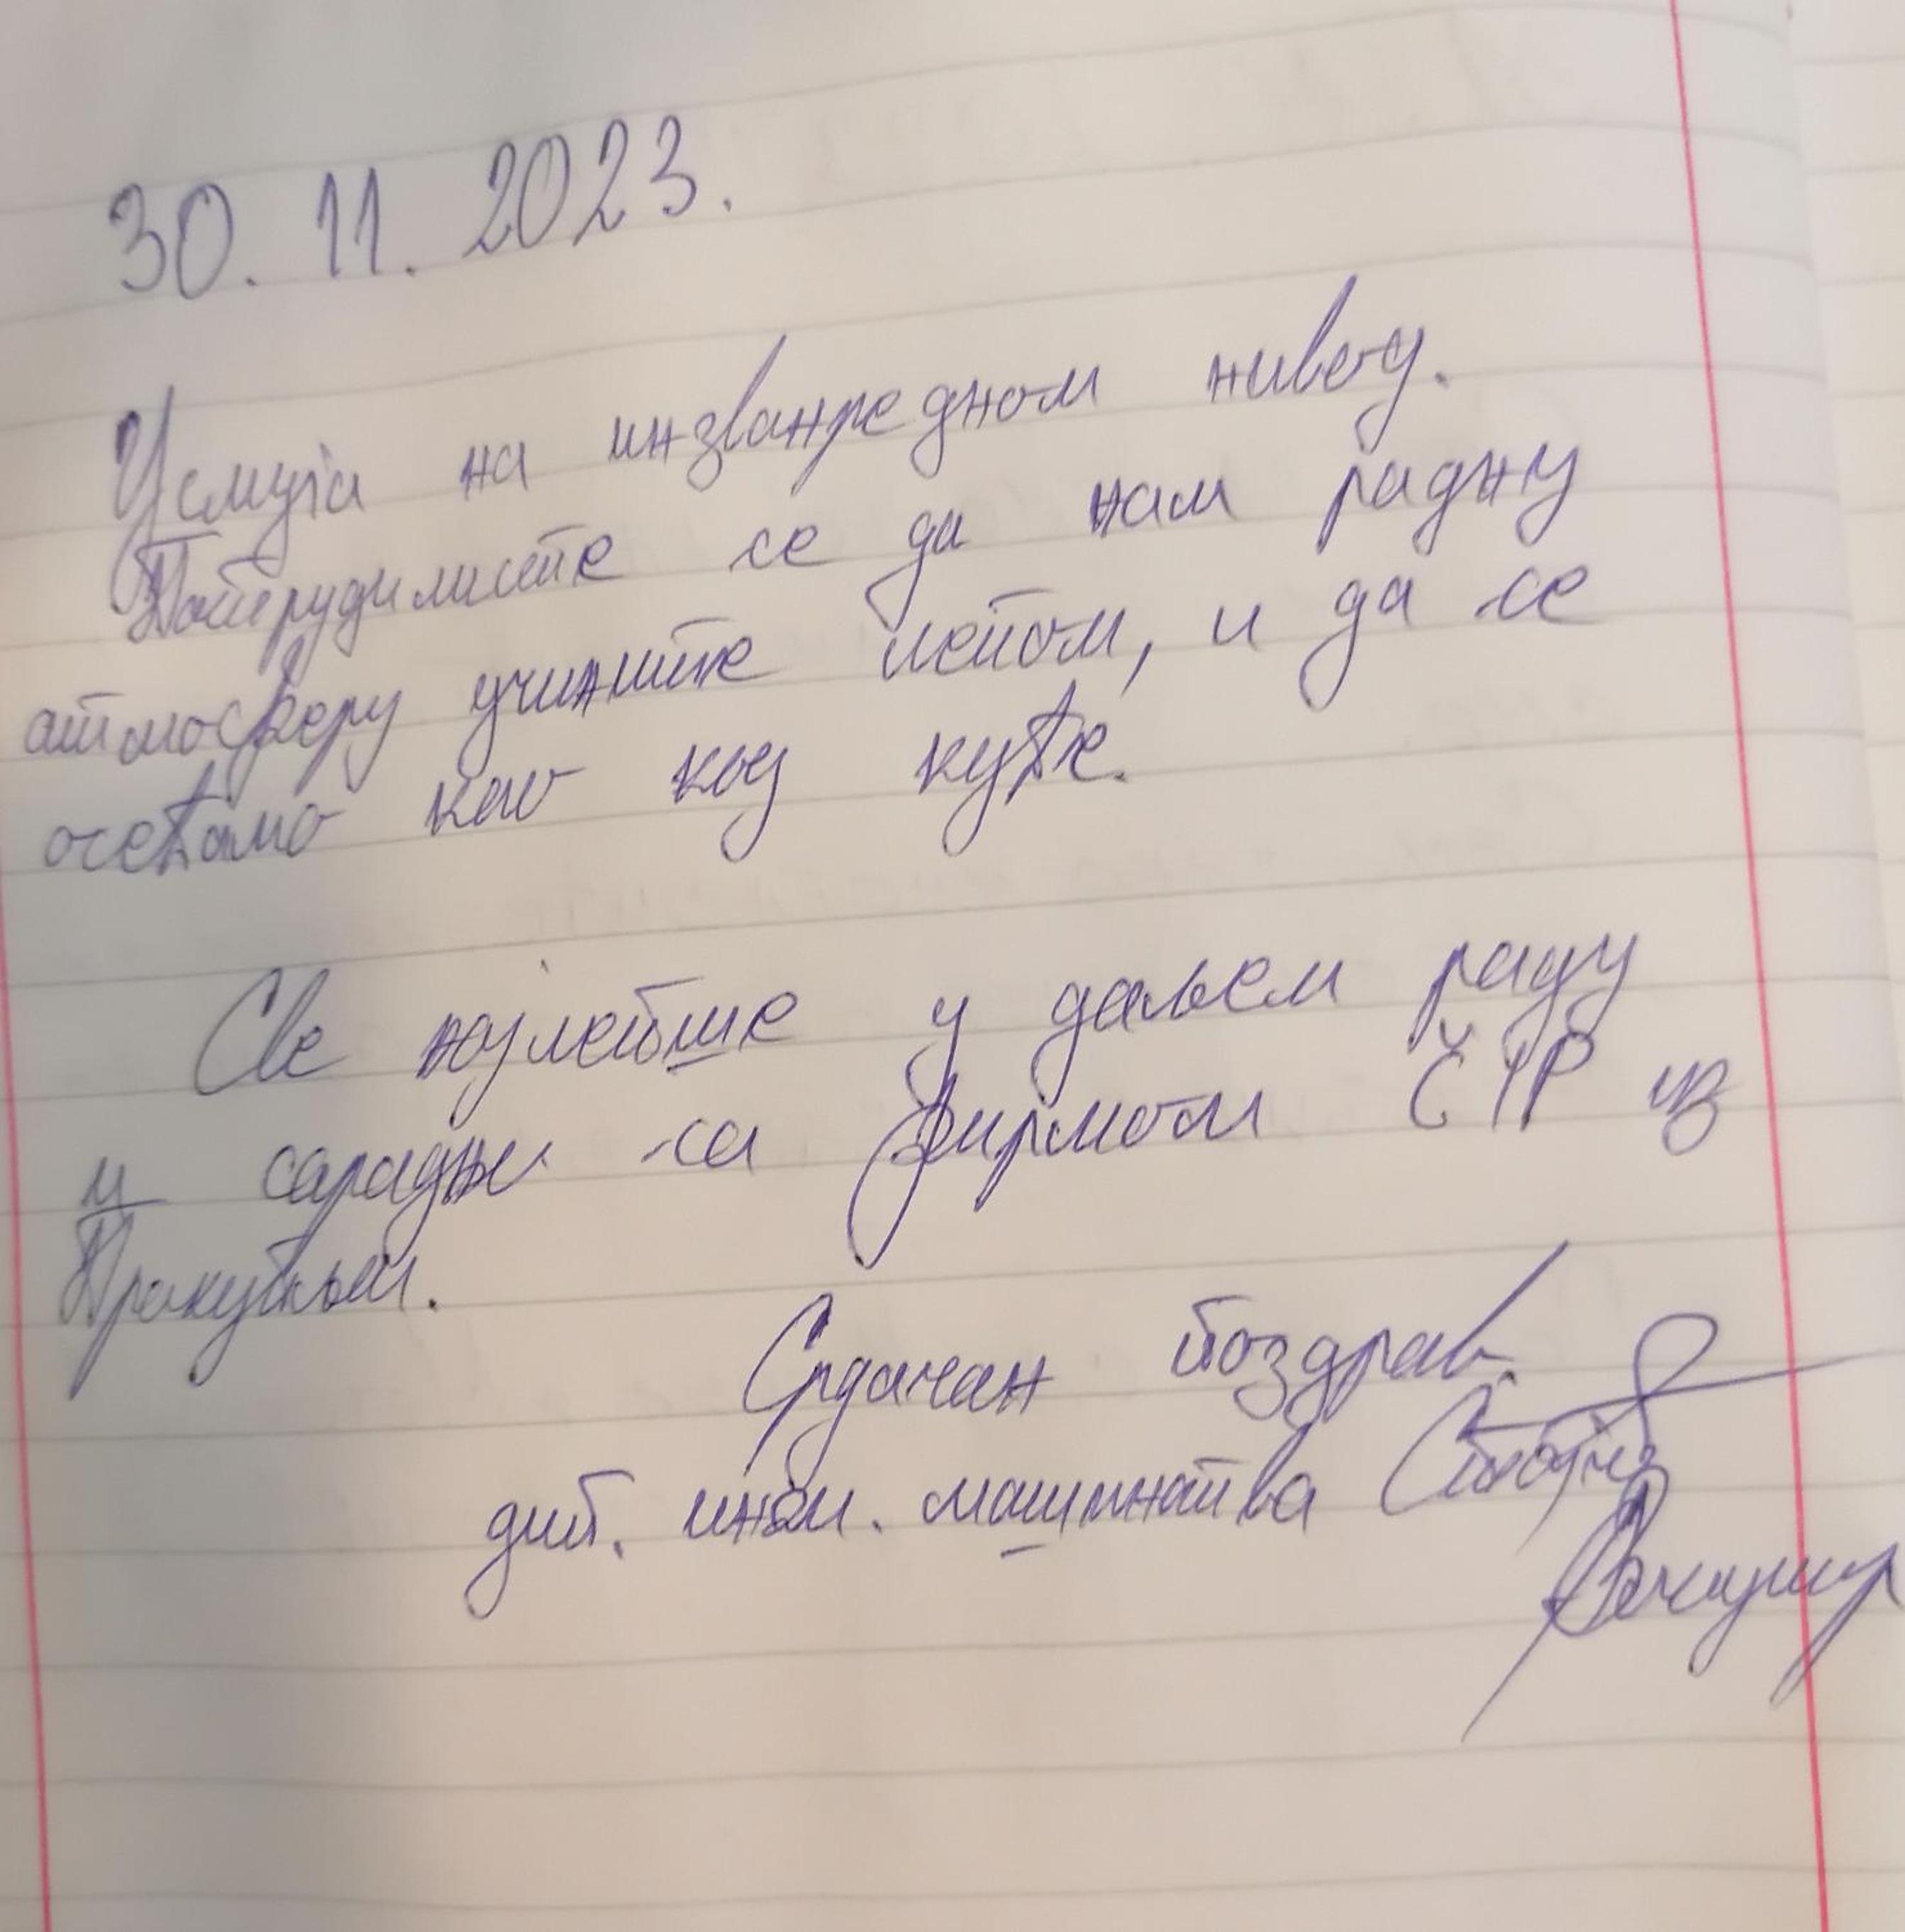 30. 11. 2023.
Услуга на инзванредном нивоу.
Потрудилисте се да нам радну
атмосферу учините лепом, и да се
осећамо као код куће.
Све најлепше у даљем раду
и сарадњи са фирмом ČIP из
Прокупља.
Срдачан поздрав.
дип. инж. машинства